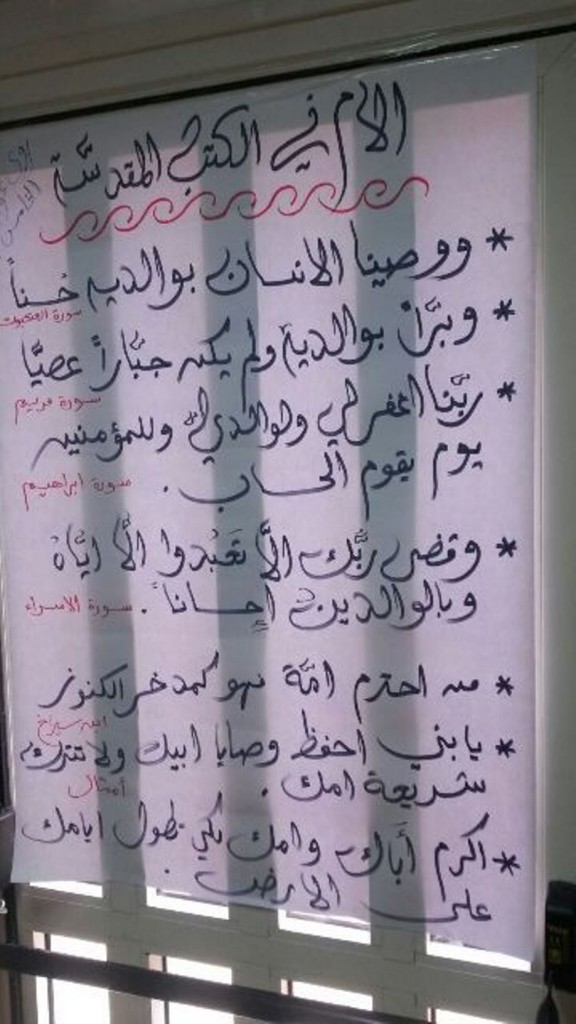 الأم في الكتب المقدسة
* ووصينا الانسان بوالديه حُسناً
سورة العنكبوت
* وبَرّاً بوالديهِ ولم يكن جبَّاراً عصيَّا
سورة مريم
* ربَّنا اغفر لي ولوالديَّ وللمؤمنين
يوم يقوم الحساب .
سورة ابراهيم
* وقضى ربُّك الَّا تَعْبُدوا الَّا ايَّاهُ
وبالوالدينِ إحساناً .
سورة الاسراء
* من احترم امَّهُ فهو كمدخر الكنوز
ابن سيراخ
* يا بني احفظ وصايا ابيك ولا تترك
شريعة امك .
أمثال
* اكرم أَباك وامك لكي تطول ايامك
على الارض .